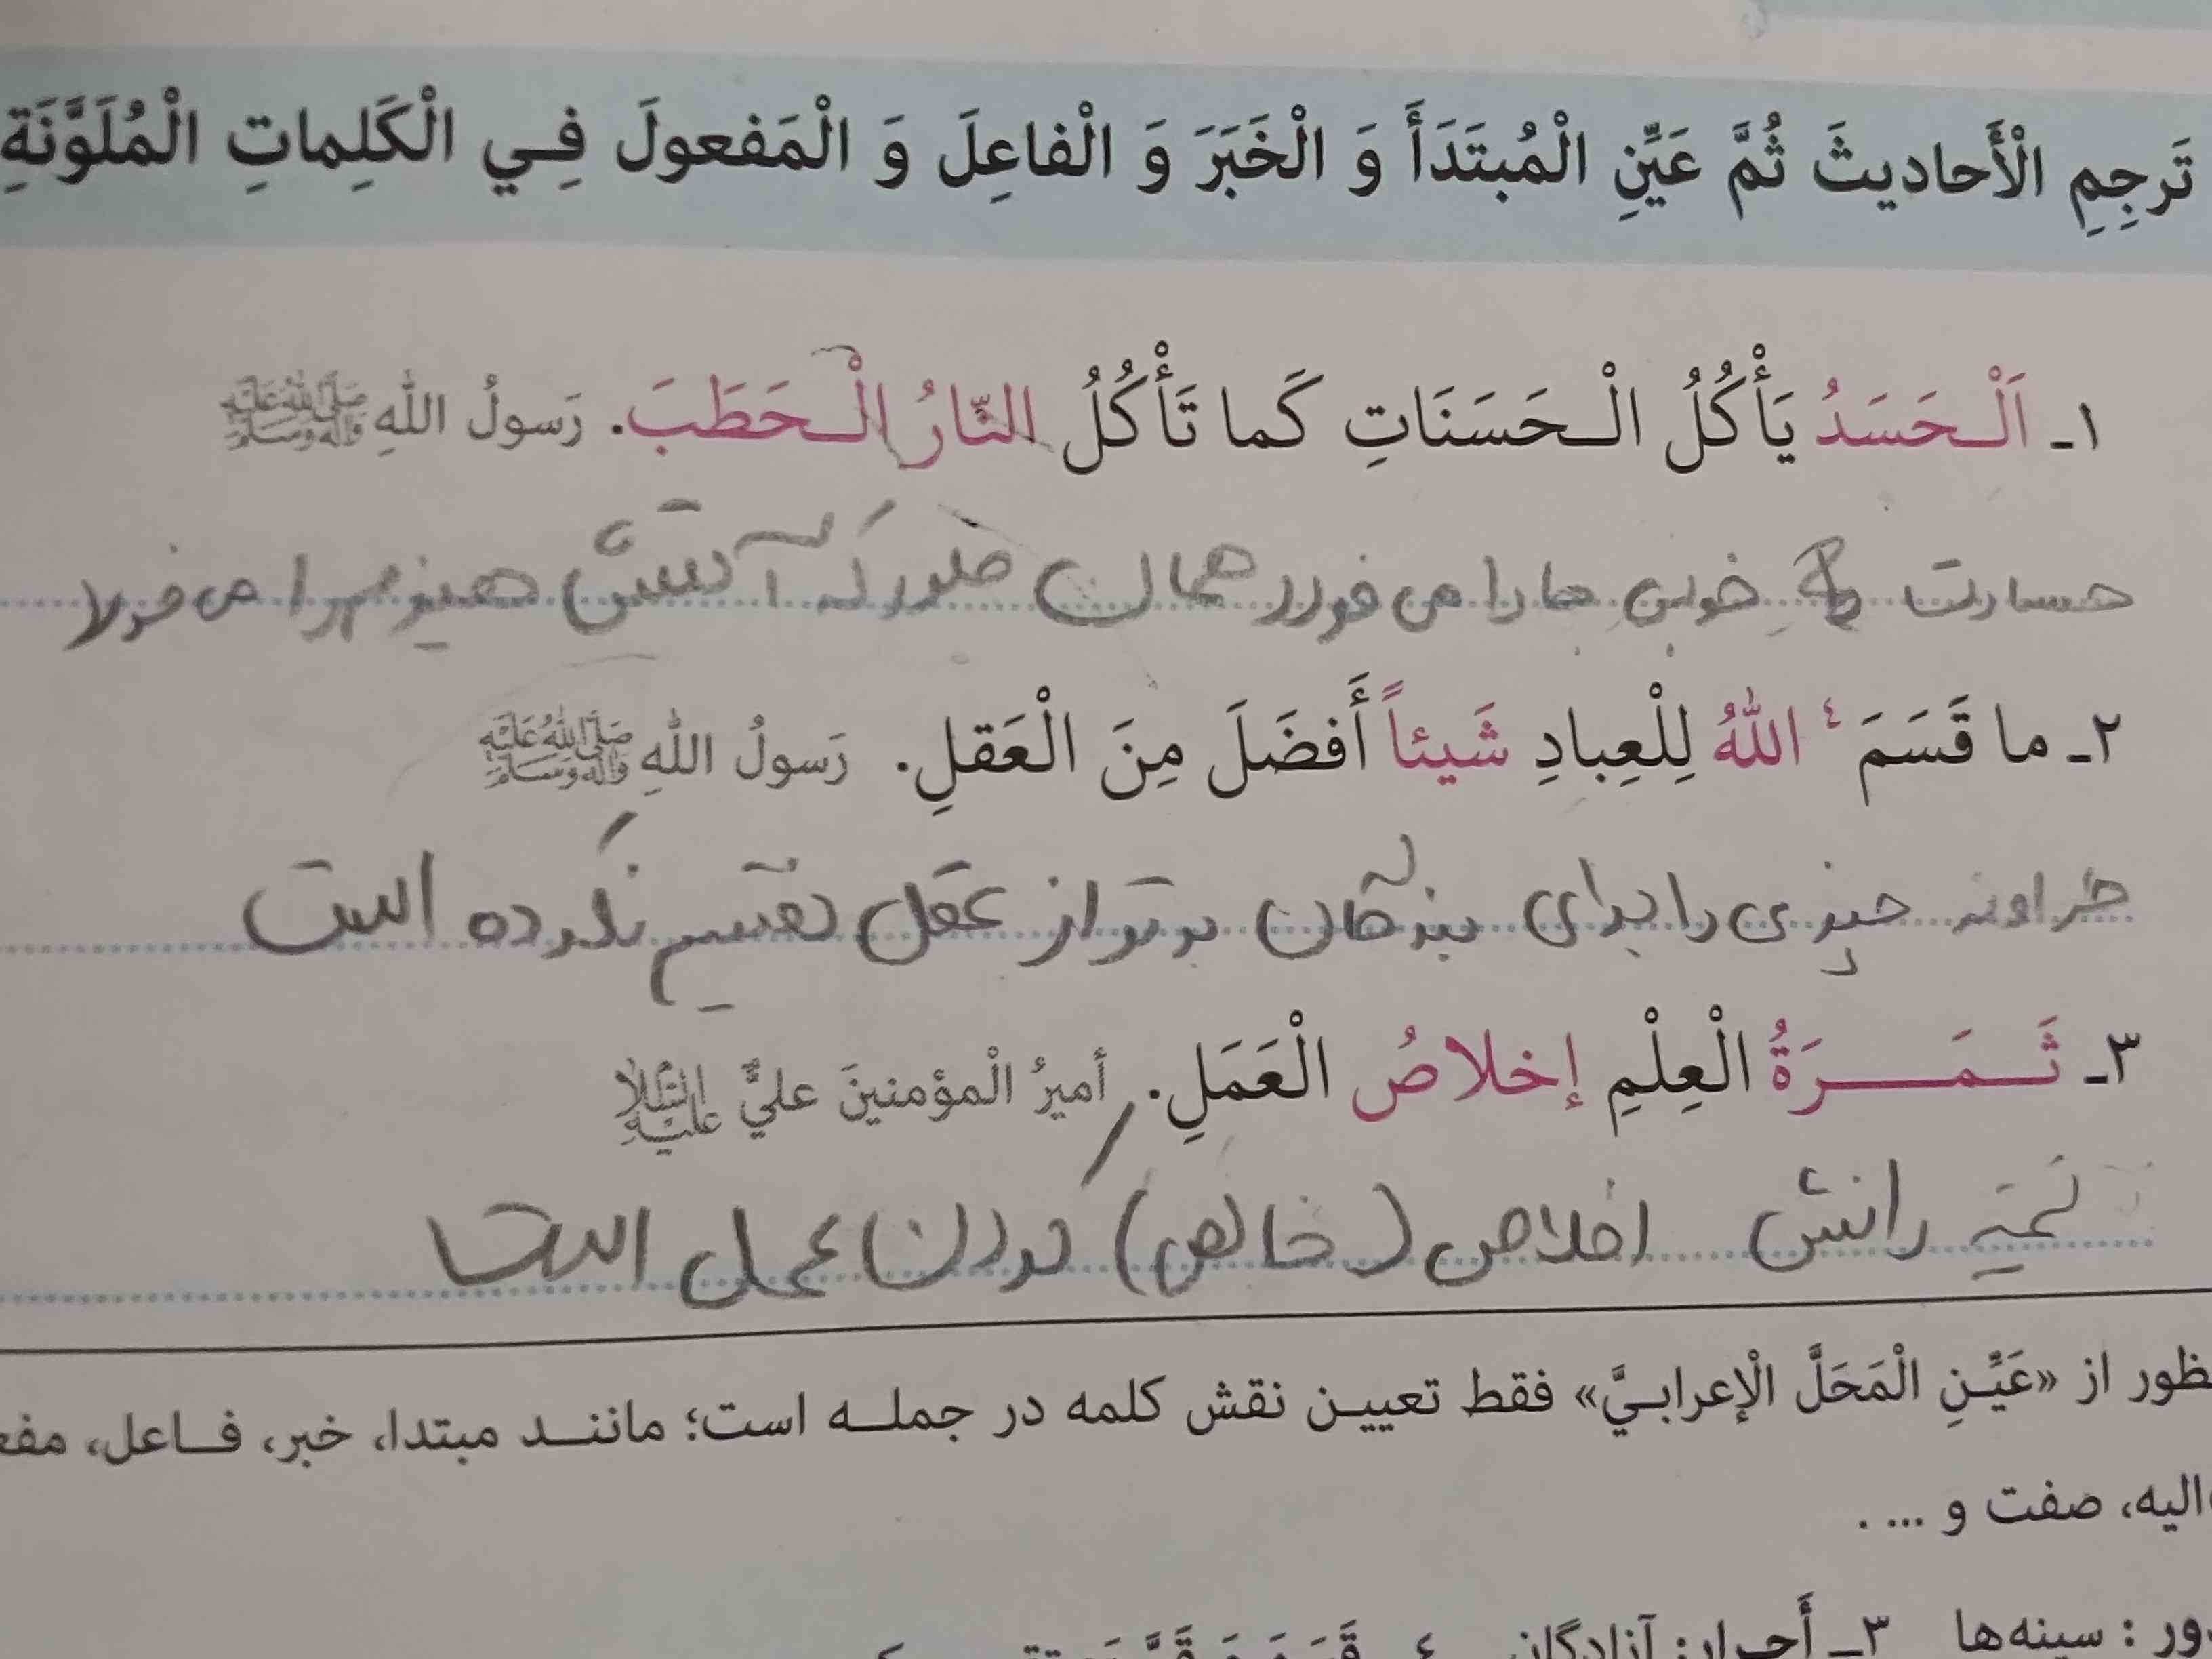 تَرجِمِ الْأَحاديثَ ثُمَّ عَيِّنِ الْمُبتَدَأَ وَ الْخَبَرَ وَ الْفاعِلَ وَ الْمَفعولَ فِي الْكَلِماتِ الْمُلَوَّنَةِ
١ـ اَلْحَسَدُ يَأْكُلُ الْحَسَنَاتِ كَما تَأْكُلُ النّارُ الْحَطَبَ. رَسولُ اللّٰهِ صَلَّی اللّٰهُ عَلَیْهِ وَآلِهِ وَسَلَّمَ
حسادت خوبی ها را می خورد همان طور که آتش هیزم را می خورد
٢ـ ما قَسَمَ ٤ اللّٰهُ لِلْعِبادِ شَيئاً أَفضَلَ مِنَ الْعَقلِ. رَسولُ اللّٰهِ صَلَّی اللّٰهُ عَلَیْهِ وَآلِهِ وَسَلَّمَ
خداوند چیزی را برای بندگان برتر از عقل تقسیم نکرده است
٣ـ ثَمَرَةُ الْعِلْمِ إخلاصُ الْعَمَلِ. أميرُ الْمؤمنينَ عليٌّ عَلَیْهِ السَّلام
دانش اخلاص (خالص) کردن عمل است
ظور از «عَيِّنِ الْمَحَلَّ الْإعرابيَّ» فقط تعیین نقش کلمه در جمله است؛ مانند مبتدا، خبر، فاعل، مفع
الیه، صفت و ... .
دور : سینه‌ها ٣ـ أَحرار: آزادگان ٤ـ